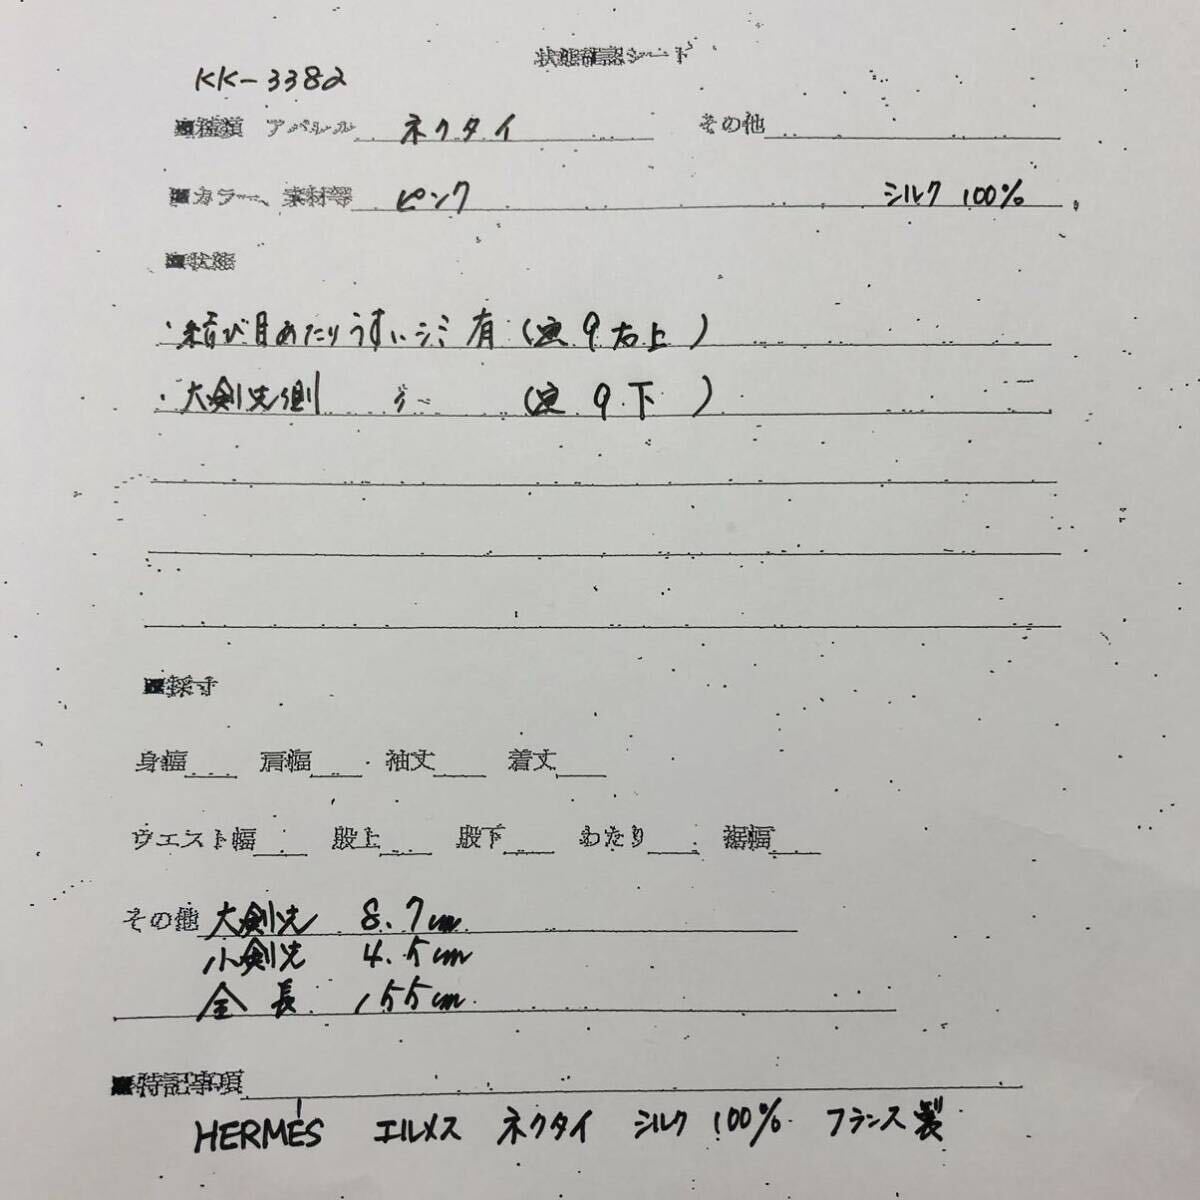 状態確認シート
KK-3382
■種類 アパレル ネクタイ その他
■カラー、素材等 ピンク シルク 100%
■状態
・結び目あたりうすいシミ有 (○9右上)
・大剣先側 〃 (○9下)
■採寸
身幅 肩幅 袖丈 着丈
ウエスト幅 股上 股下 わたり 裾幅
その他 大剣先 8.7cm
小剣先 4.5cm
全長 155cm
■特記事項
HERMÈS エルメス ネクタイ シルク 100% フランス製